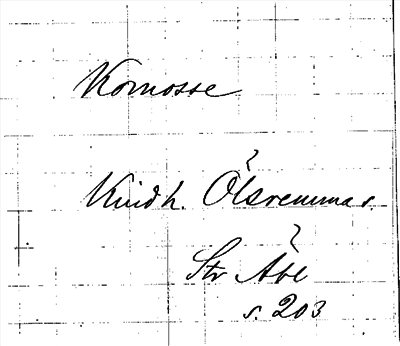 Komosse
Kindh. Ölsremma s.
s. 203